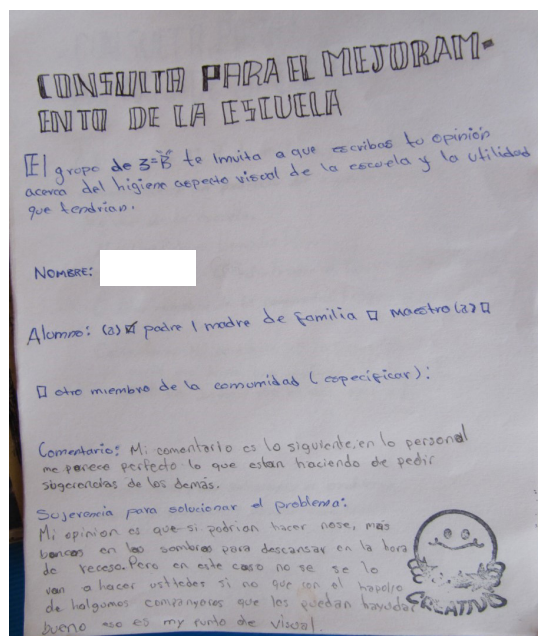 CONSULTA PARA EL MEJORAM-
ENTO DE LA ESCUELA
El grupo de 3=B te invita a que escribas tu opinión
acerca del higiene aspecto visual de la escuela y la utilidad
que tendrían.
NOMBRE:
Alumno: (a) padre / madre de familia maestro (a)
otro miembro de la comunidad (especificar):
Comentario: Mi comentario es lo siguiente, en lo personal
me parece perfecto lo que estan haciendo de pedir
sugerencias de los demás.
Sujerencia para solucionar el problema:
Mi opinion es que si podrian hacer nose, más
bancos en las sombras para descansar en la hora
de receso. Pero en este caso no se se lo
van a hacer usttedes si no que con el hapollo
de halgumos companyeros que los puedan hayudar
bueno eso es my punto de visual.
CREATIVO